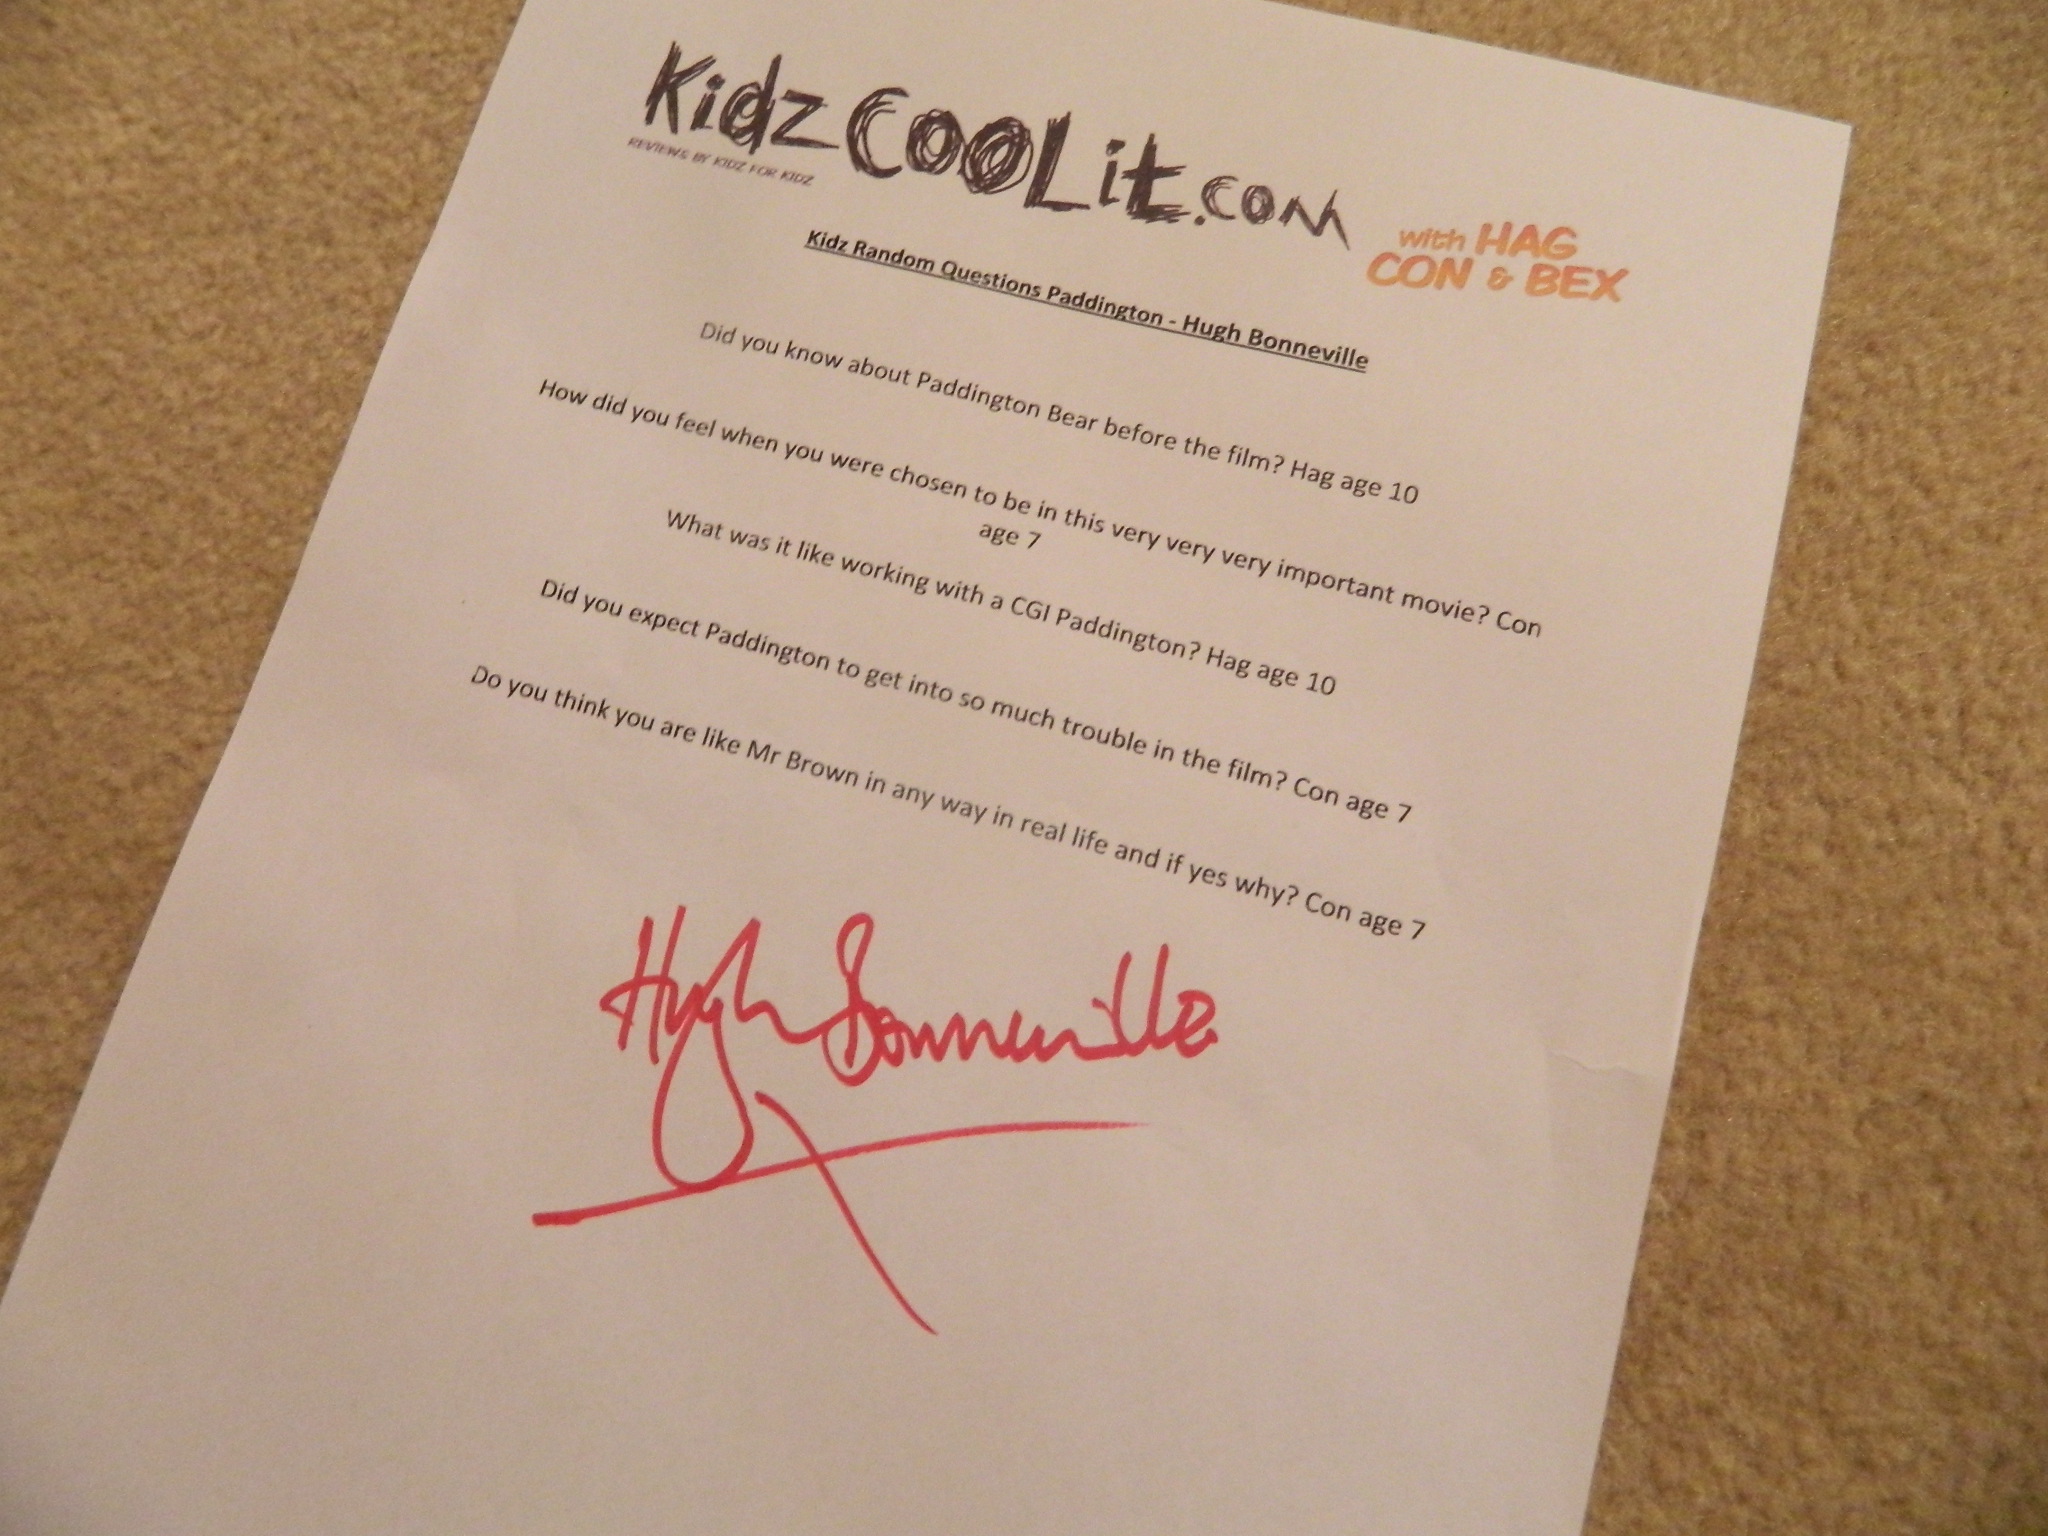 Kidz COOLit.com
REVIEWS BY KIDZ FOR KIDZ
with HAG
CON & BEX
Kidz Random Questions Paddington - Hugh Bonneville
Did you know about Paddington Bear before the film? Hag age 10
How did you feel when you were chosen to be in this very very very important movie? Con
age 7
What was it like working with a CGI Paddington? Hag age 10
Did you expect Paddington to get into so much trouble in the film? Con age 7
Do you think you are like Mr Brown in any way in real life and if yes why? Con age 7
Hugh Bonneville